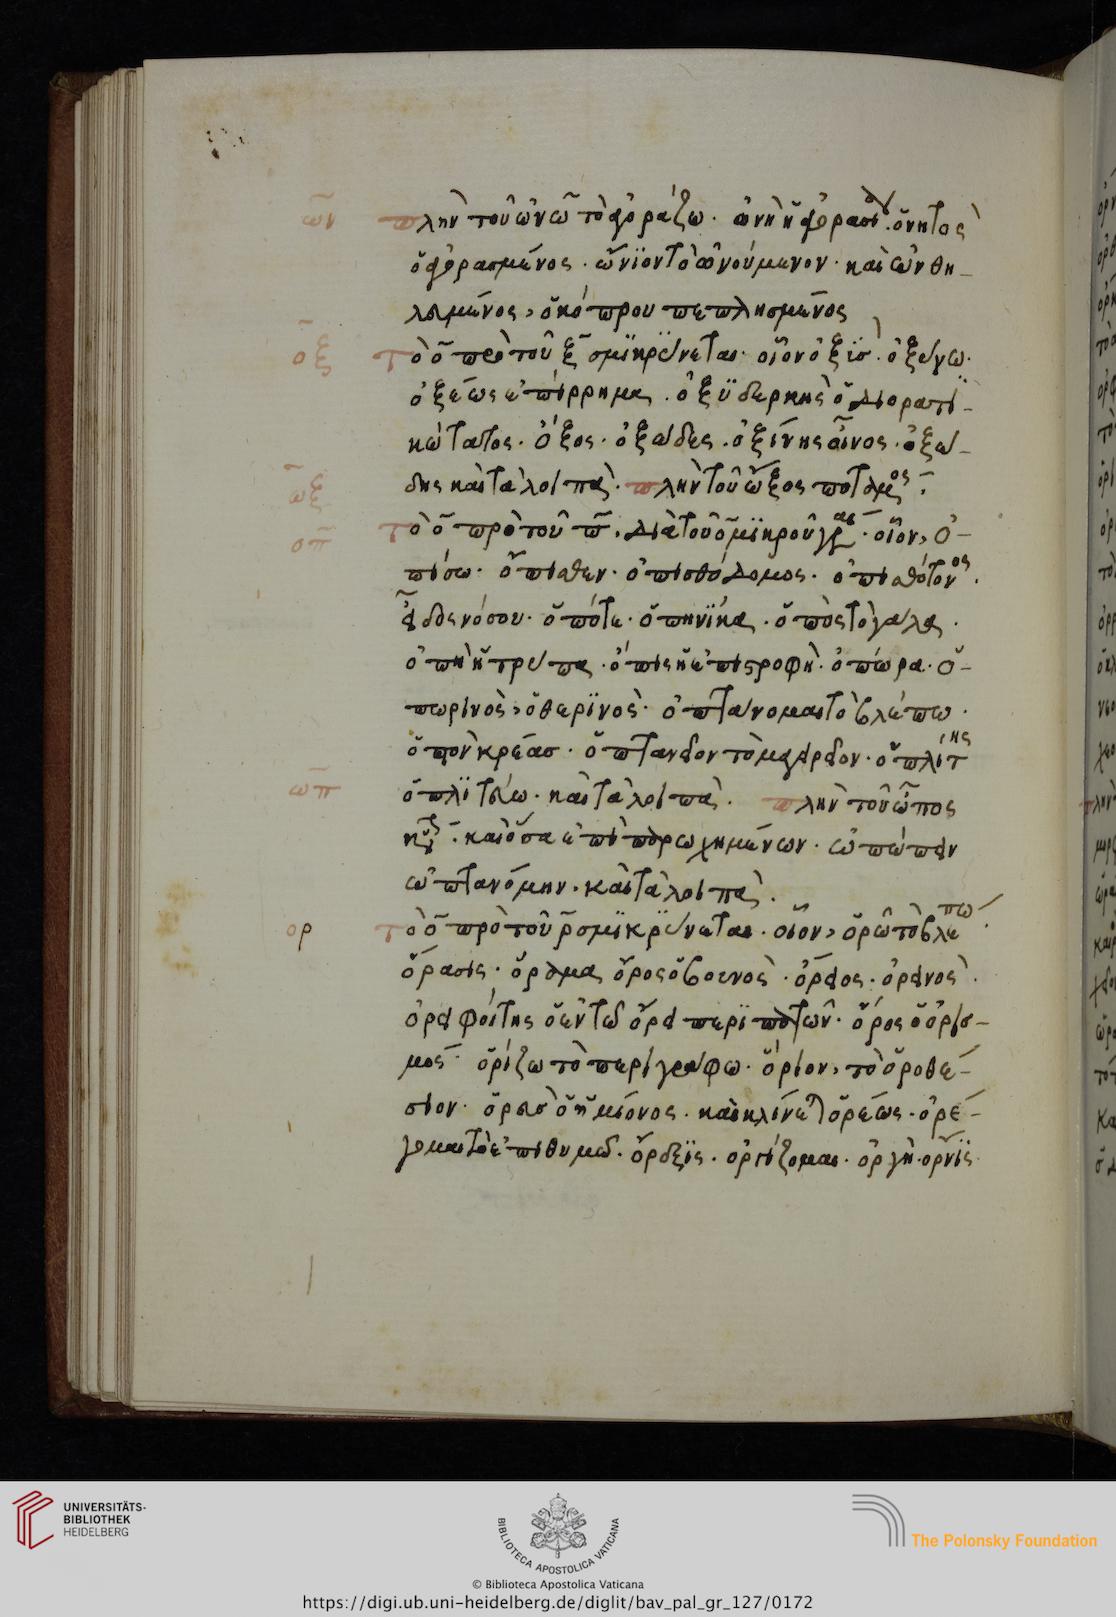 ων πλὴν τοῦ ὠνῶ τὸ ἀγοράζω· ὠνὴ ἡ ἀγόρασις· ὀνητὸς
ὁ ἀγορασμένος· ὤνϊον τὸ ὠνούμενον· καὶ ὠνθη-
λωμένος, ὁ κόπρου πεπλησμένος
οξ τὸ ο πρὸ τοῦ ξ σμϊκρΰνεται· οἷον ὀξϊσ· ὀξύγω·
ὀξέως ἐπίρρημα· ὀξϋδερκὴς ὁ διορατϊ-
κώτατος· ὄξος· ὀξώδες· ὀξίνης οἶνος· ὀξώ-
ωξ δης καὶ τὰ λοιπὰ· πλὴν τοῦ ὦξος ποταμος
οπ τὸ ο πρὸ τοῦ π, διὰ τοῦ ο μϊκροῦ γρ· οἷον, ὀ-
πίσω· ὄπισθεν· ὀπισθόδομος· ὀπισθότονος·
εἶδος νόσου· ὁπότε· ὁπηνΐκα· ὀπὸς τὸ γάλα·
ὀπὴ ἡ τρύπα· ὄπις ἡ ἐπιστροφὴ· ὀπώρα· ὀ-
πωρινὸς, ὁ θερϊνὸς· ὀπτάνομαι τὸ βλέπω·
ὀπτὸν κρέασ· ὀπτανεῖον τὸ μαγειρεῖον· ὁπλίτης
ωπ ὁπλϊτεύω· καὶ τὰ λοιπὰ· πλὴν τοῦ ὦπος
καὶ ὅσα ἐπὶ παρωχημένων· ὠπώπειν
ὠπτανόμην· καὶ τὰ λοιπὰ·
ορ τὸ ο πρὸ τοῦ ρ σμϊκρΰνεται· οἷον, ὁρῶ τὸ βλέπω
ὅρασις· ὅραμα ὄρος ὁ βουνὸς· ὄρειος· ὀρεινὸς·
ὀρειφοίτης ὁ ἐν τῶ ὄρει περϊπατῶν· ὅρος ὁ ὁρισ-
μός· ὁρίζω τὸ περιγράφω· ὅριον, τὸ ὁροθέ-
σιον· ὀρεὺσ ὁ ἡμίονος· καὶ κλίνεται ὀρέως· ὀρέ-
γομαι τὸ ἐπιθυμῶ· ὄρεξϊς· ὀργίζομαι· ὀργὴ· ὄρνϊς
UNIVERSITÄTS-
BIBLIOTHEK
HEIDELBERG
BIBLIOTECA APOSTOLICA VATICANA
The Polonsky Foundation
© Biblioteca Apostolica Vaticana
https://digi.ub.uni-heidelberg.de/diglit/bav_pal_gr_127/0172